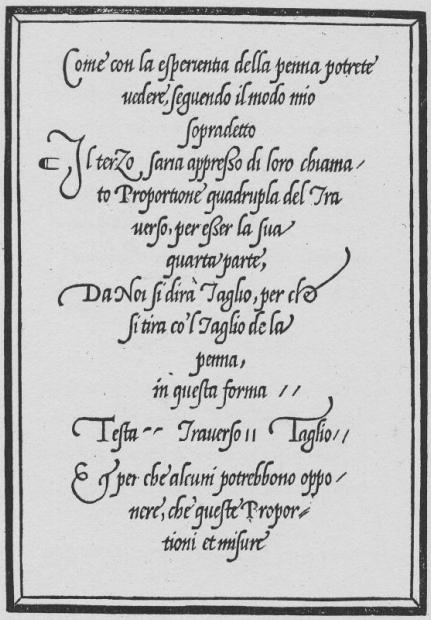 Come con la esperientia della penna potrete
vedere, seguendo il modo mio
sopradetto
Il terzo sara appresso di loro chiama/
to Proportione quadrupla del Tra
verso, per esser la sua
quarta parte,
Da Noi si dirà Taglio, per che
si tira co'l Taglio de la
penna,
in questa forma //
Testa -- Traverso // Taglio//
Et per che alcuni potrebbono oppo/
nere, che queste Propor/
tioni et misure